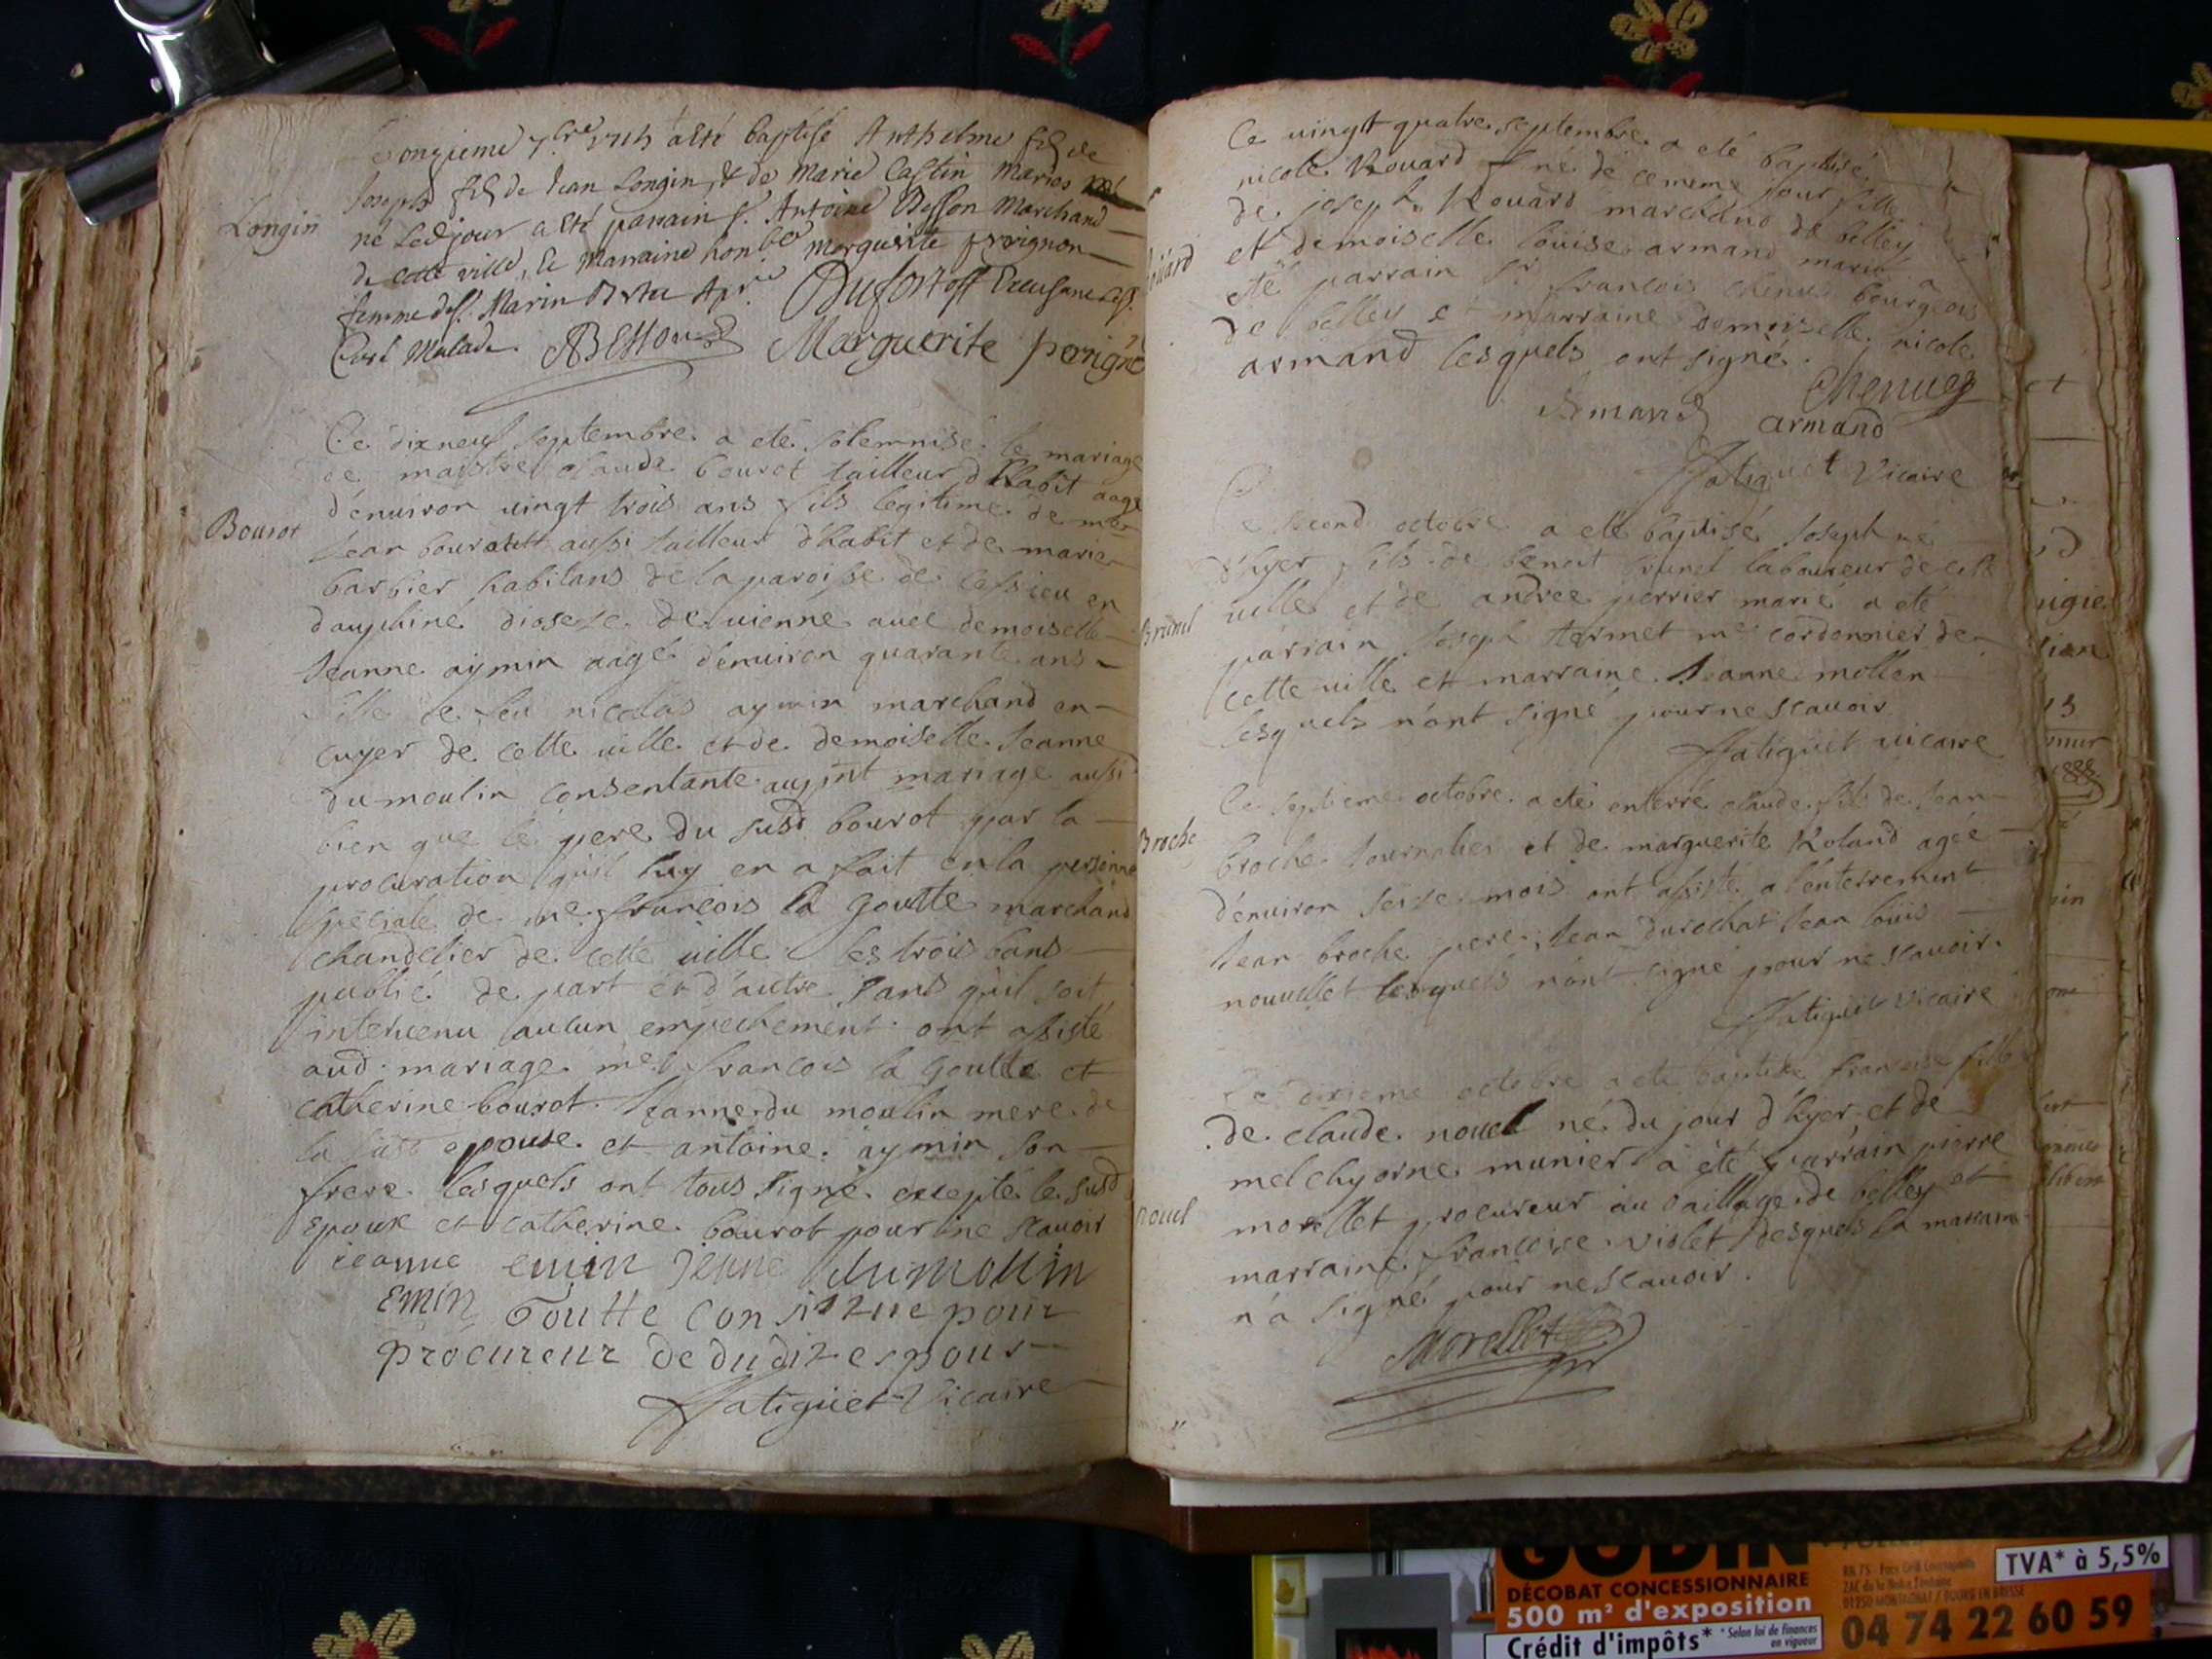 Longin
Le onzieme 7bre 1715 a été baptisé Anthelme fils de
Joseph fils de Jean Longin, & de Marie Castin Mariés
né led jour a été parrain sr. Antoine Besson Marchand
de cette ville, & Marraine honble Marguerite perrignon
femme du s. Marin
Curé Malade. ABesson Marguerite perrigno
Bourot
Ce dixneuf septembre a eté solemnisé le mariage
de maistre claude bourot tailleur d'habit aagé
d'enuiron uingt trois ans fils legitime de me
Jean bourot aussi tailleur d'habit et de marie
barbier habitans de la paroisse de cessieu en
dauphiné diosese de uienne auec demoiselle
Jeanne aymin aagé d'enuiron quarante ans
fille de feu nicolas aymin marchand en
cuyer de cette uille et de demoiselle Jeanne
du moulin consentante au pnt mariage aussi
bien que le pere du susd bourot par la
procuration qu'il luy en a fait en la personne
speciale de me francois la goutte marchand
chandelier de cette uille les trois bans
publié de part et d'autre sans qu'il soit
interuenu aucun empechement ont assisté
aud. mariage me francois la goutte et
catherine bourot. Jeanne du moulin mere de
la susd epouse et antoine aymin son
frere lesquels ont tous signé excepté le susd
epoux et catherine bourot pour ne scauoir
jeanne emin Jenne dumollin
emin Goutte consitue pour
procureur de dudit espous
ffatiguet Vicaire
Ce uingt quatre septembre a eté baptisé
nicole Rouard né de ce meme jour fille
de joseph Rouard marchand de belley
et demoiselle louise armand marié a
eté parrain sr francois chenue bourgeois
de belley et marraine demoiselle nicole
armand lesquels ont signé.
Chenue
armand
ffatiguet Vicaire
Brunel
Ce second octobre a eté baptisé Joseph né
d'hyer fils de benoit brunel laboureur de cette
uille et de andree perrier marié a eté
parrain Joseph termet me cordonnier de
cette uille et marraine Jeanne mollen
lesquels n'ont signé pour ne scauoir
ffatiguet uicaire
Broche
Ce septieme octobre a eté enterré claude fils de Jean
broche Journalier et de marguerite Roland agée
d'enuiron seize mois ont assisté a l'enterrement
Jean broche pere, Jean durochat Jean louis
nouuellet lesquels n'ont signé pour ne scauoir.
ffatiguet Vicaire
nouel
Ce dixieme octobre a eté baptisé francoise fille
de claude nouel né du jour d'hyer et de
melchyorne munier a été parrain pierre
morellet procureur au baillage de belley et
marraine francoise violet desquels la marraine
n'a signé pour ne scauoir.
Morellet
GODIN
DÉCOBAT CONCESSIONNAIRE
500 m² d'exposition
Crédit d'impôts* *Selon loi de finances
en vigueur
TVA* à 5,5%
04 74 22 60 59